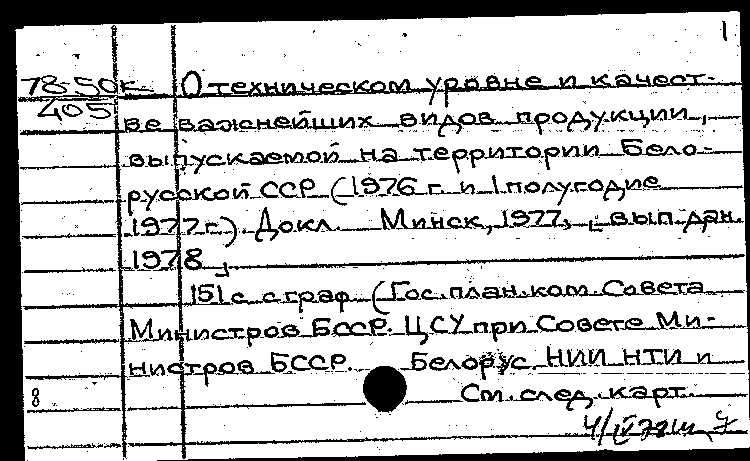 1
78-50к О техническом уровне и качест-
405 ве важнейших видов продукции,
выпускаемой на территории Бело-
русской ССР (1976 г. и 1 полугодие
1977 г.). Докл. Минск, 1977, [вып. дан.
1978]
151 с. с граф. (Гос. план. ком. Совета
Министров БССР. ЦСУ при Совете Ми-
нистров БССР. Белорус. НИИ НТИ и
8 См. след. карт.
4/IV 78